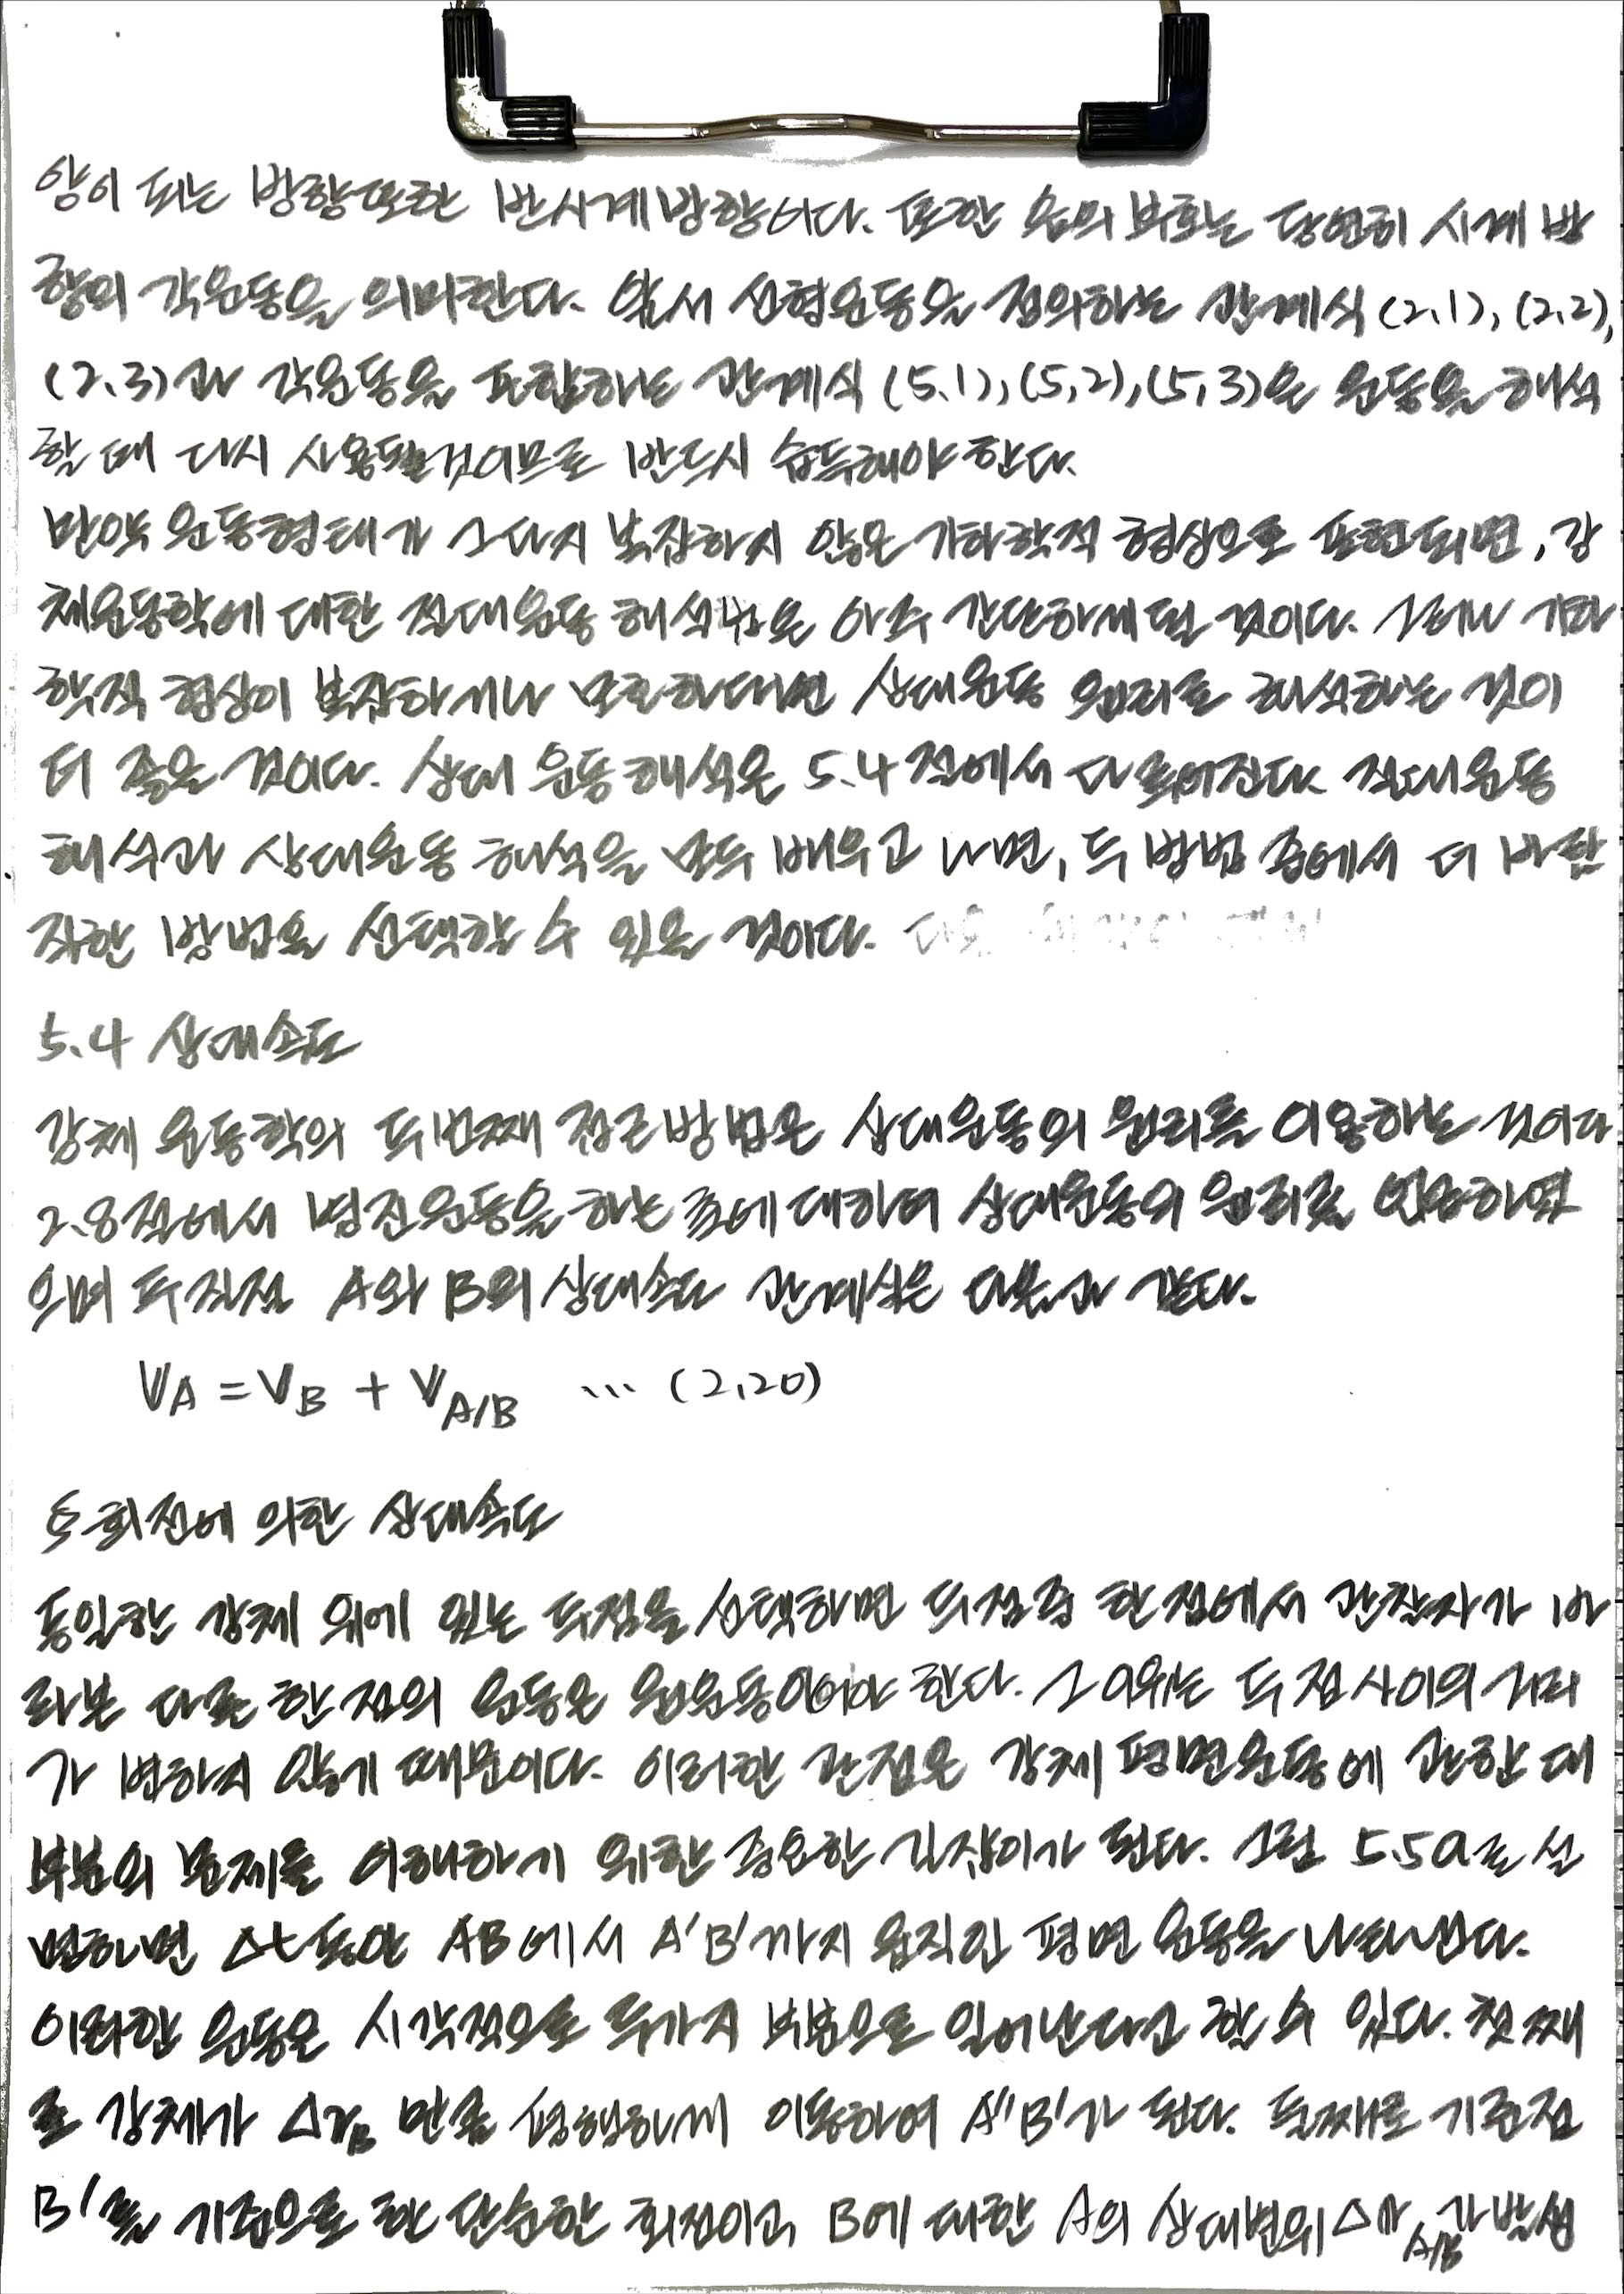 양이 되는 방향또한 반시계방향이다. 또한 음의 부호는 당연히 시계 방
향의 각운동을 의미한다. 앞서 선형운동을 정의하는 관계식 (2.1), (2.2),
(2.3)과 각운동을 포함하는 관계식 (5.1), (5.2), (5.3)은 운동을 해석
할 때 다시 사용될것이므로 반드시 습득해야 한다.
만약 운동형태가 그다지 복잡하지 않은 기하학적 형상으로 표현되면, 강
체운동학에 대한 절대운동 해석법은 아주 간단하게 될 것이다. 그러나 기하
학적 형상이 복잡하거나 모호하다면 상대운동 원리로 해석하는 것이
더 좋을 것이다. 상대 운동해석은 5.4절에서 다루어진다. 절대운동
해석과 상대운동 해석을 모두 배우고 나면, 두 방법 중에서 더 바람
직한 방법을 선택할 수 있을 것이다.
5.4 상대속도
강체 운동학의 두번째 접근방법은 상대운동의 원리를 이용하는 것이다
2.8절에서 병진운동을 하는 축에 대하여 상대운동의 원리를 언급하였
으며 두 질점 A와 B의 상대속도 관계식은 다음과 같다.
VA = VB + VA/B ... (2.20)
§ 회전에 의한 상대속도
동일한 강체 위에 있는 두점을 선택하면 두점중 한 점에서 관찰자가 바
라본 다른 한 점의 운동은 원운동이어야 한다. 그 이유는 두 점사이의 거리
가 변하지 않기 때문이다. 이러한 관점은 강체 평면운동에 관한 대
부분의 문제를 이해하기 위한 중요한 길잡이가 된다. 그림 5.5a로 설
명하면 Δt동안 AB에서 A'B'까지 움직인 평면 운동을 나타낸다.
이러한 운동은 시각적으로 두가지 부분으로 일어난다고 할 수 있다. 첫째
로 강체가 ΔrB 만큼 평행하게 이동하여 A''B'가 된다. 둘째로 기준점
B'를 기준으로 한 단순한 회전이고, B에 대한 A의 상대변위 ΔrA/B가 발생